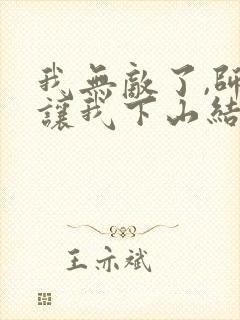 我無敵了,師
讓我下山結
王亦斌